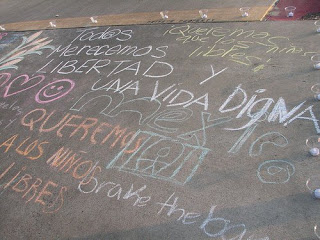 Todos
Merecemos
LIBERTAD Y
UNA VIDA DIGNA
¡Queremos
libres!
QUEREMOS
A LOS NIÑOS
LIBRES
brake the